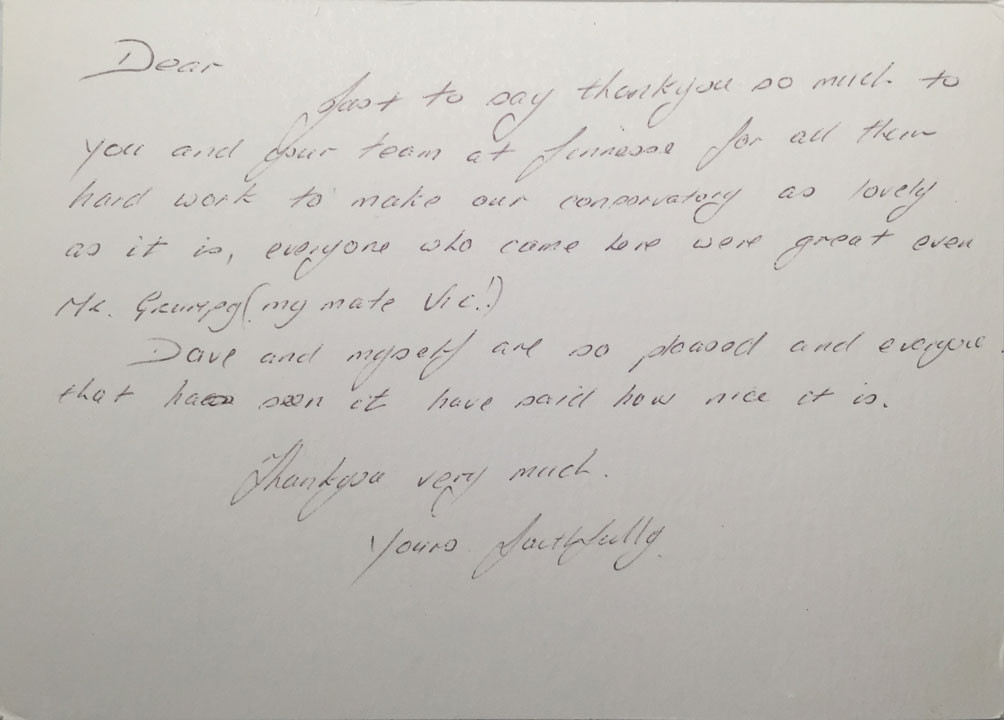 Dear
Just to say thankyou so much to
you and your team at finnesse for all their
hard work to make our conservatory as lovely
as it is, everyone who came here were great even
Mr. Grumpy (my mate Vic!)
Dave and myself are so pleased and everyone
that has seen it have said how nice it is.
Thankyou very much.
Yours faithfully